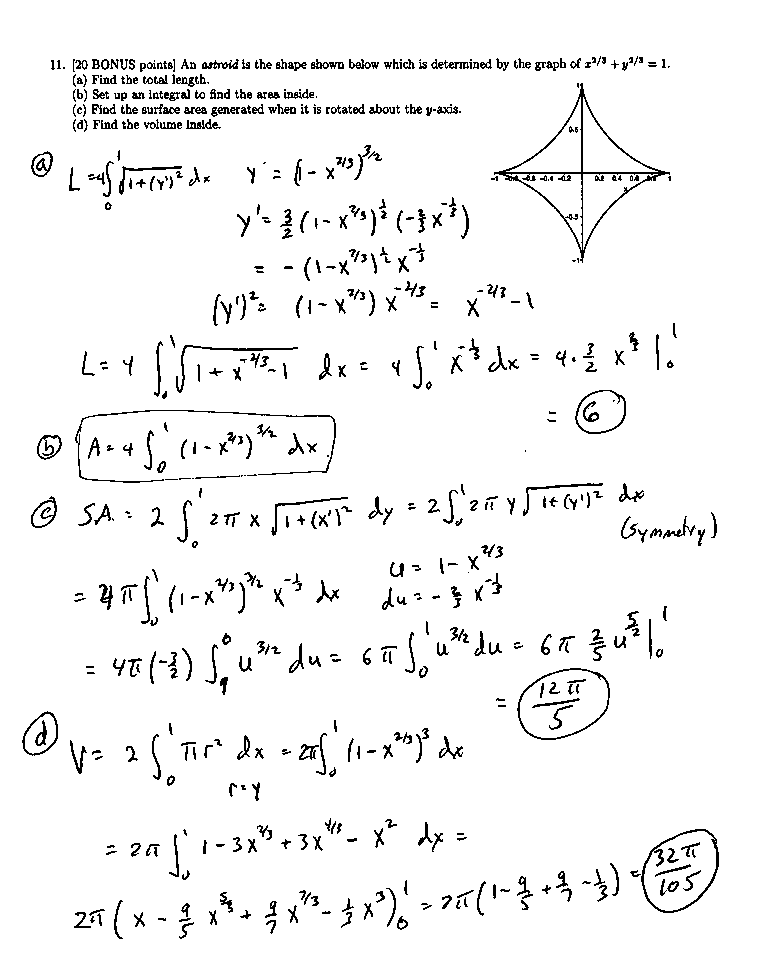 11. [20 BONUS points] An astroid is the shape shown below which is determined by the graph of x^{2/3} + y^{2/3} = 1.
(a) Find the total length.
(b) Set up an integral to find the area inside.
(c) Find the surface area generated when it is rotated about the y-axis.
(d) Find the volume inside.
1
0.5
-1 -0.8 -0.6 -0.4 -0.2 0.2 0.4 0.6 0.8 1
x
-0.5
-1
(a) L = 4∫_0^1 √(1+(y')^2) dx   y = (1 - x^{2/3})^{3/2}
y' = 3/2 (1 - x^{2/3})^{1/2} (-2/3 x^{-1/3})
= - (1 - x^{2/3})^{1/2} x^{-1/3}
(y')^2 = (1 - x^{2/3}) x^{-2/3} = x^{-2/3} - 1
L = 4 ∫_0^1 √(1 + x^{-2/3} - 1) dx = 4 ∫_0^1 x^{-1/3} dx = 4 · 3/2 x^{2/3} |_0^1
= 6
(b) A = 4 ∫_0^1 (1 - x^{2/3})^{3/2} dx
(c) S.A. = 2 ∫_0^1 2π x √(1+(x')^2) dy = 2 ∫_0^1 2π y √(1+(y')^2) dx
(symmetry)
= 4π ∫_0^1 (1 - x^{2/3})^{3/2} x^{-1/3} dx   u = 1 - x^{2/3}
du = - 2/3 x^{-1/3}
= 4π (-3/2) ∫_1^0 u^{3/2} du = 6π ∫_0^1 u^{3/2} du = 6π 2/5 u^{5/2} |_0^1
= 12π/5
(d) V = 2 ∫_0^1 π r^2 dx = 2π ∫_0^1 (1 - x^{2/3})^3 dx
r = y
= 2π ∫_0^1 1 - 3x^{2/3} + 3x^{4/3} - x^2 dx =
2π ( x - 9/5 x^{5/3} + 9/7 x^{7/3} - 1/3 x^3 )_0^1 = 2π (1 - 9/5 + 9/7 - 1/3) = 32π/105